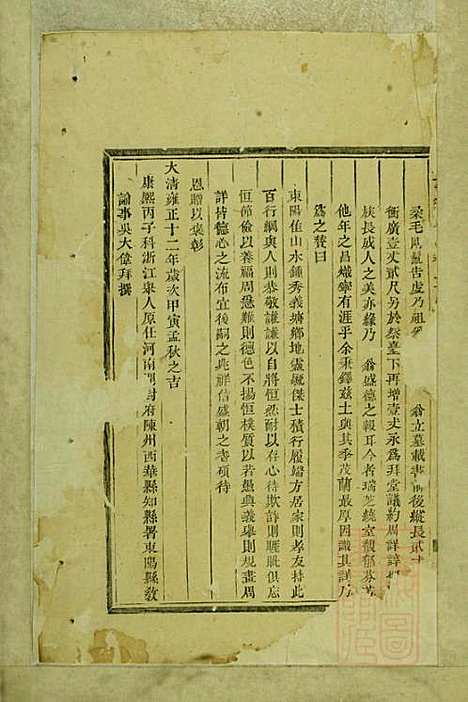 柔毛剛鬣告虔乃祖 翁立墓載書 後縱長貳丈
衝廣壹丈貳尺另於祭臺下再增壹丈永爲拜堂議約周詳諄
族長成人之美亦緣乃 翁盛德之報耳今者瑞芝繞室馥郁芬芳
他年之昌熾寧有涯乎余秉鐸茲土與其季茂蘭最厚因識其詳乃
爲之贊曰
東陽佳山水鍾秀義塘鄉地靈毓傑士積行履端方居家則孝友持此
百行綱與人則恭敬謙謙以自將恒然耐以存心待欺詐則賑賑俱忘
恒節儉以養福周急難則德色不揚恒樸質以若愚興義舉則規畫周
詳持德心之流布宜後嗣之兆祥信盛朝之耆碩待
恩贈以褒彰
大清雍正十二年歲次甲寅孟秋之吉
康熙丙子科浙江舉人原任河南開封府陳州西華縣知縣署東陽縣教
諭事吳大偉拜撰